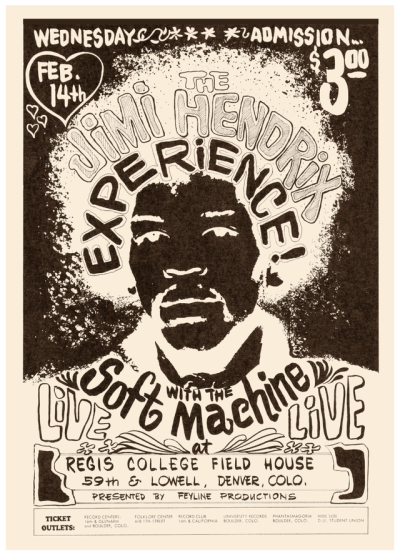 WEDNESDAY ADMISSION...
FEB. 14th
$3.00
THE
JIMI HENDRIX
EXPERIENCE!
WITH THE
Soft Machine
LIVE LIVE
at
REGIS COLLEGE FIELD HOUSE
59th & LOWELL, DENVER, COLO.
PRESENTED BY FEYLINE PRODUCTIONS
TICKET OUTLETS:
RECORD CENTERS,
and BOULDER, COLO.
FOLKLORE CENTER
RECORD CLUB
14th & CALIFORNIA
UNIVERSITY RECORDS
BOULDER, COLO.
PHANTASMAGORIA
BOULDER, COLO.
D.U. STUDENT UNION